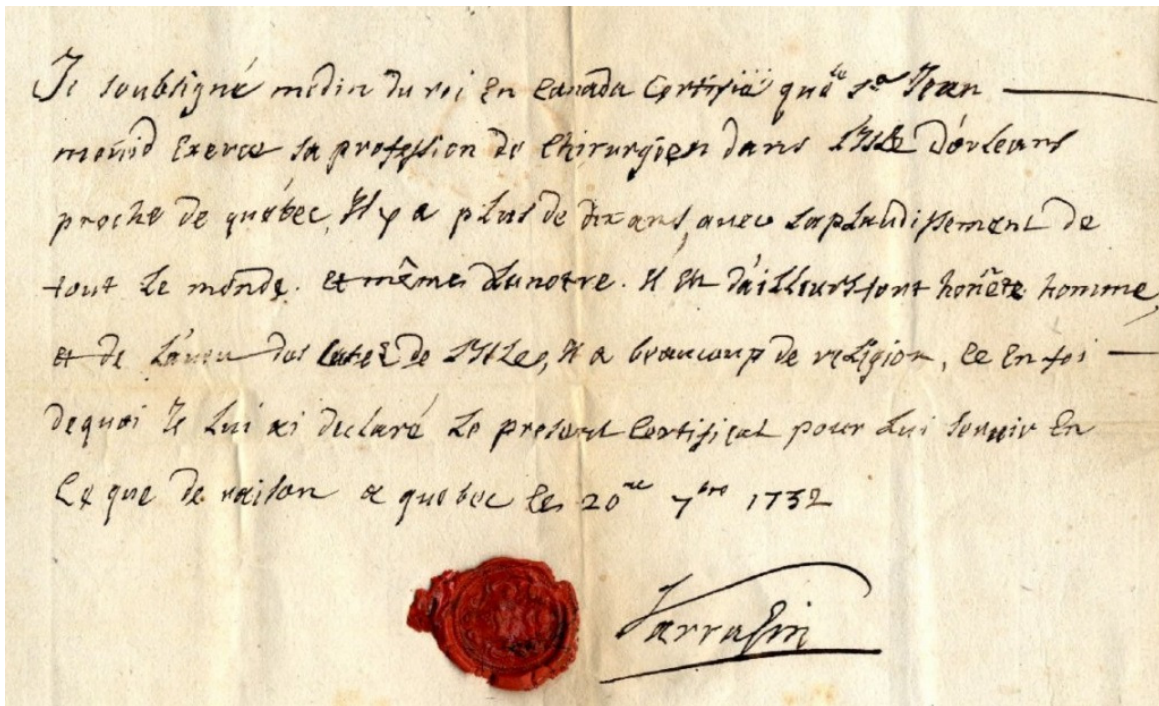 Je soubsigné medin du roi En Canada Certifie que le Sr Jean
mauvid Exerce sa profession de Chirurgien dans L'Isle d'orleans
proche de quebec, Il y a plus de dix ans, avec Laplaudissement de
tout Le monde. et même Lunotre. Il Est d'ailleurs fort honête homme,
et de L'aveu des Curés de L'Isle, Il a beaucoup de religion, Ce En foi
dequoi Je Lui ai declaré Le present Certificat pour Lui servir En
Ce que de raison a quebec les 20me 7bre 1732
Sarrasin